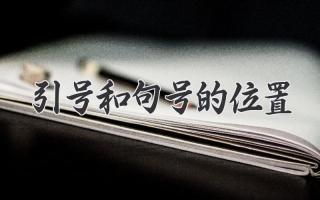 引号和句号的位置